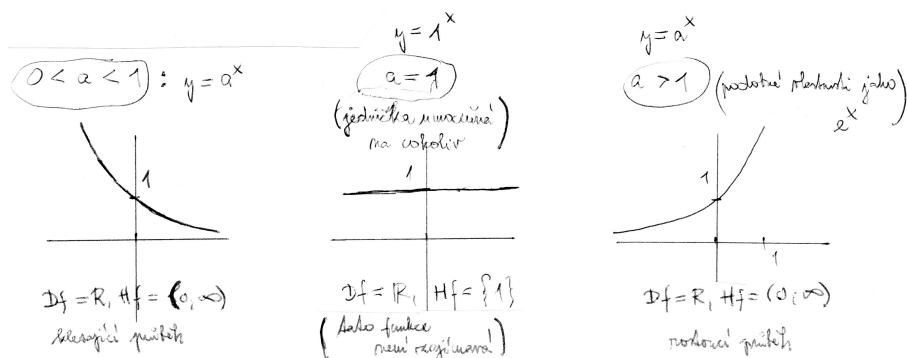 0 < a < 1 : y = a^x
1
Df = R, Hf = (0; ∞)
klesající průběh
y = 1^x
a = 1
(jednička umocněná
na cokoliv)
1
Df = R, Hf = {1}
(tato funkce
není zajímavá)
y = a^x
a > 1 (podobné vlastnosti jako
e^x)
1
1
Df = R, Hf = (0; ∞)
rostoucí průběh